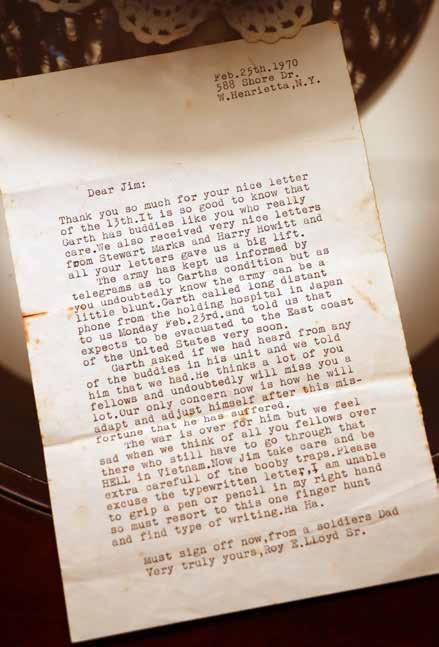 Feb.25th.1970
588 Shore Dr.
W.Henrietta,N.Y.
Dear Jim:
Thank you so much for your nice letter
of the 13th.It is so good to know that
Garth has buddies like you who really
care.We also received very nice letters
from Stewart Marks and Harry Howitt and
all your letters gave us a big lift.
The army has kept us informed by
telegrams as to Garths condition but as
you undoubtedly know the army can be a
little blunt.Garth called long distant
phone from the holding hospital in Japan
to us Monday Feb.23rd.and told us that
expects to be evacuated to the East coast
of the United States very soon.
Garth asked if we had heard from any
of the buddies in his unit and we told
him that we had.He thinks a lot of you
fellows and undoubtedly will miss you a
lot.Our only concern now is how he will
adapt and adjust himself after this mis-
fortune that he has suffered.
The war is over for him but we feel
sad when we think of all you fellows over
there who still have to go through that
HELL in Vietnam.Now Jim take care and be
extra carefull of the booby traps.Please
excuse the typewritten letter,I am unable
to grip a pen or pencil in my right hand
so must resort to this one finger hunt
and find type of writing.Ha Ha.
Must sign off now,from a soldiers Dad
Very truly yours,Roy E.LLoyd Sr.